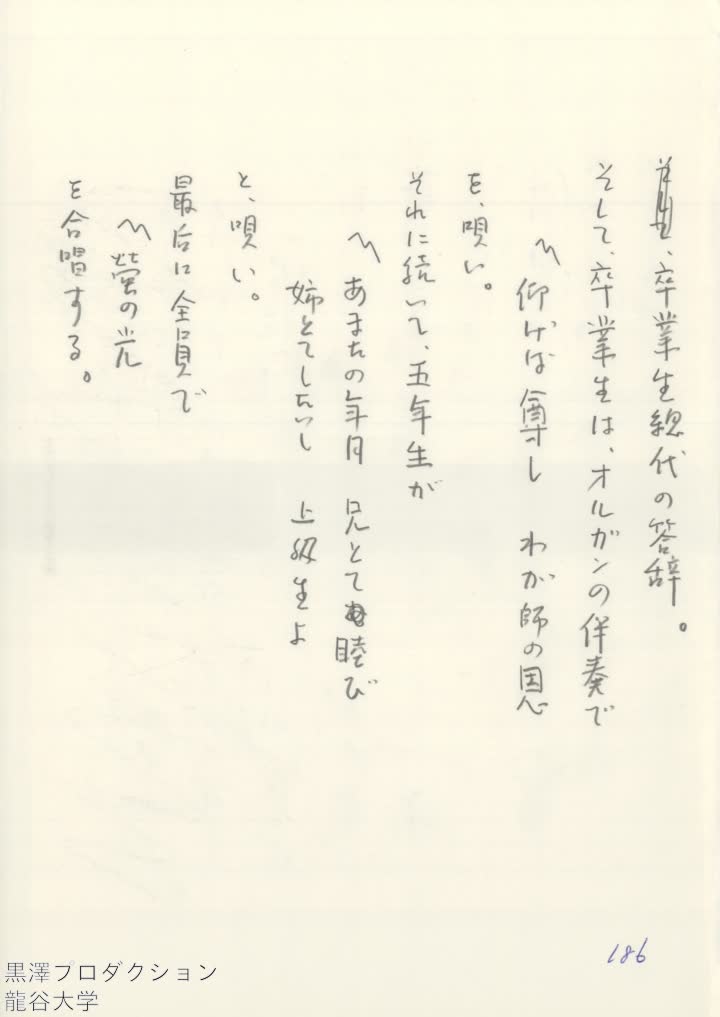 、卒業生総代の答辞。
そして、卒業生は、オルガンの伴奏で
〽仰げば尊し　わが師の恩
を、唄い。
それに続いて、五年生が
〽あまたの年月　兄とて睦び
姉とてしたいし　上級生よ
と、唄い。
最后に全員で
〽螢の光
を合唱する。
186
黒澤プロダクション
龍谷大学